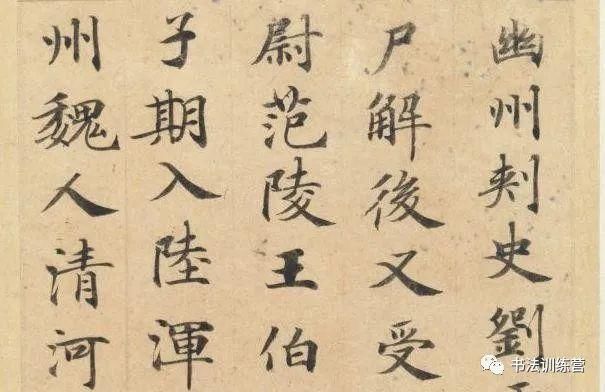 幽州刾史劉
尸解後又受
尉范陵王伯
子期入陸渾
州魏人清河
书法训练营